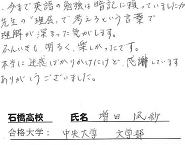 今まで英語の勉強は暗記に頼っていましたが
先生の「理屈」で考えろという言葉で
理解が深まった気がします。
ふんいきも 明るく、楽しかったです。
本当に迷惑ばかりかけたけど、感謝しています
ありがとうございました。
石橋高校 氏名 増田
合格大学: 中央大学 文学部